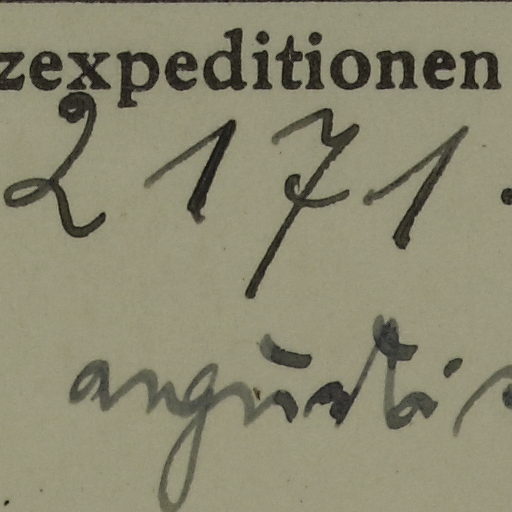 zexpeditionen
2171.
angusti